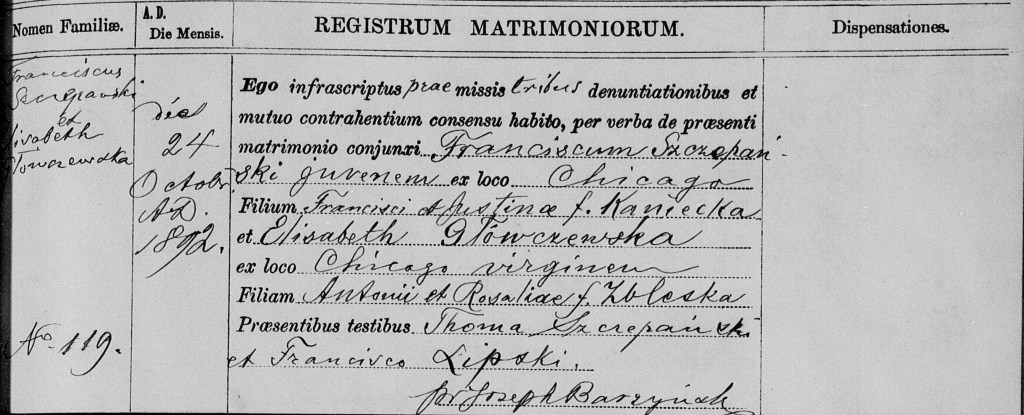 Nomen Familiæ.
A. D.
Die Mensis.
REGISTRUM MATRIMONIORUM.
Dispensationes.
Franciscus
Szczepański
et
lisabeth
Głowczewska
No. 119.
die
24
Octobr
A.D.
1892.
Ego infrascriptus prae missis tribus denuntiationibus et
mutuo contrahentium consensu habito, per verba de præsenti
matrimonio conjunxi Franciscum Szczepań-
ski juvenem ex loco Chicago
Filium Francisci et Justinæ f. Kaniecka
et Elisabeth Główczewska
ex loco Chicago virginem
Filiam Antonii et Rosaliae f. Zbleska
Præsentibus testibus Thoma Szczepański
et Francisco Lipski.
Joseph Barzyński